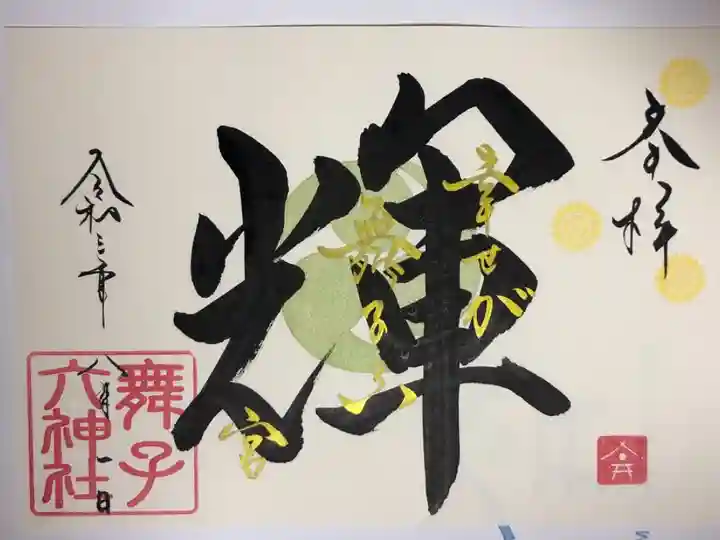 奉拝
輝
幸せが
舞子六
宮
令和三年
八月一日
舞子
六神社